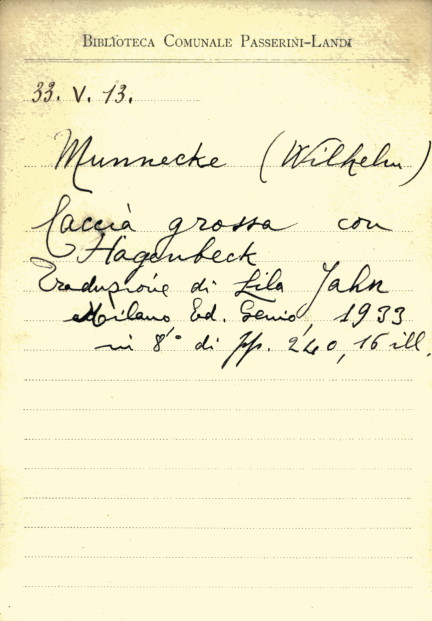 BIBLIOTECA COMUNALE PASSERINI-LANDI
33. V. 13.
Munnecke (Wilhelm)
Caccia grossa con
Hagenbeck
Traduzione di Lila Jahn
Milano, Ed. Genio, 1933
in 8° di pp. 240, 16 ill.